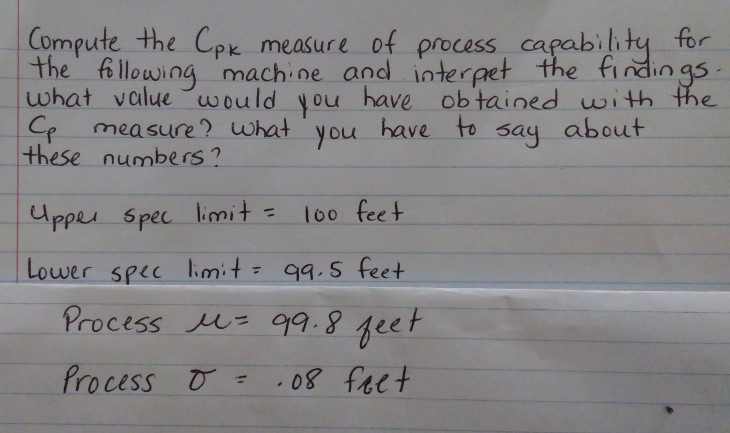 Compute the Cpk measure of process capability for
the following machine and interpet the findings.
what value would you have obtained with the
Cp measure? what you have to say about
these numbers?
Upper spec limit = 100 feet
Lower spec limit = 99.5 feet
Process μ = 99.8 feet
Process σ = .08 feet